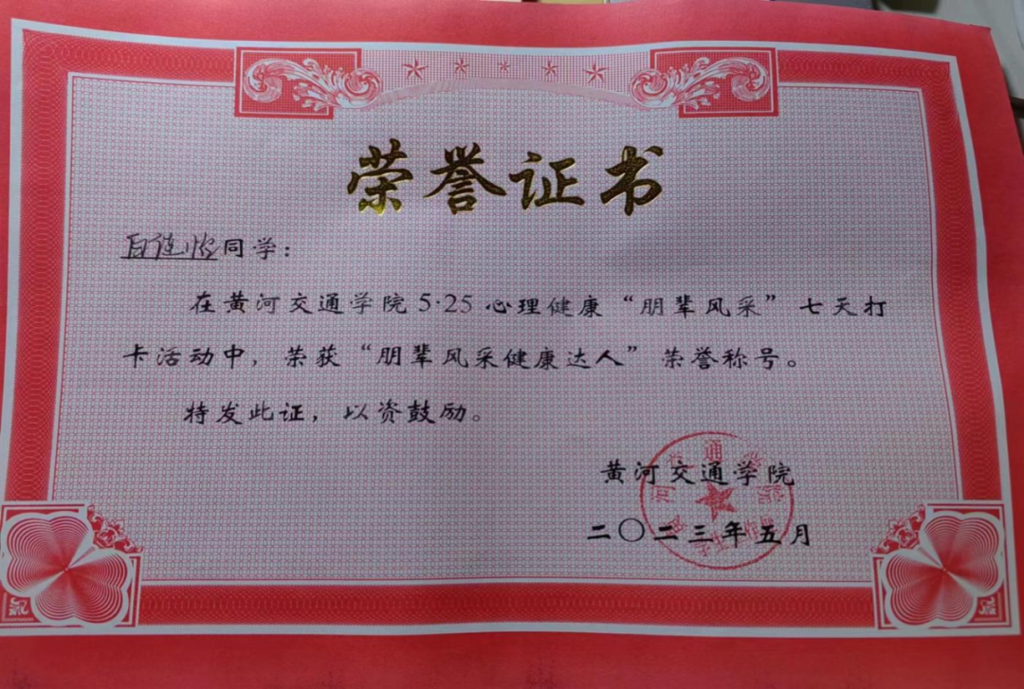 荣誉证书
同学：
在黄河交通学院5·25心理健康“朋辈风采”七天打
卡活动中，荣获“朋辈风采健康达人”荣誉称号。
特发此证，以资鼓励。
黄河交通学院
二〇二三年五月